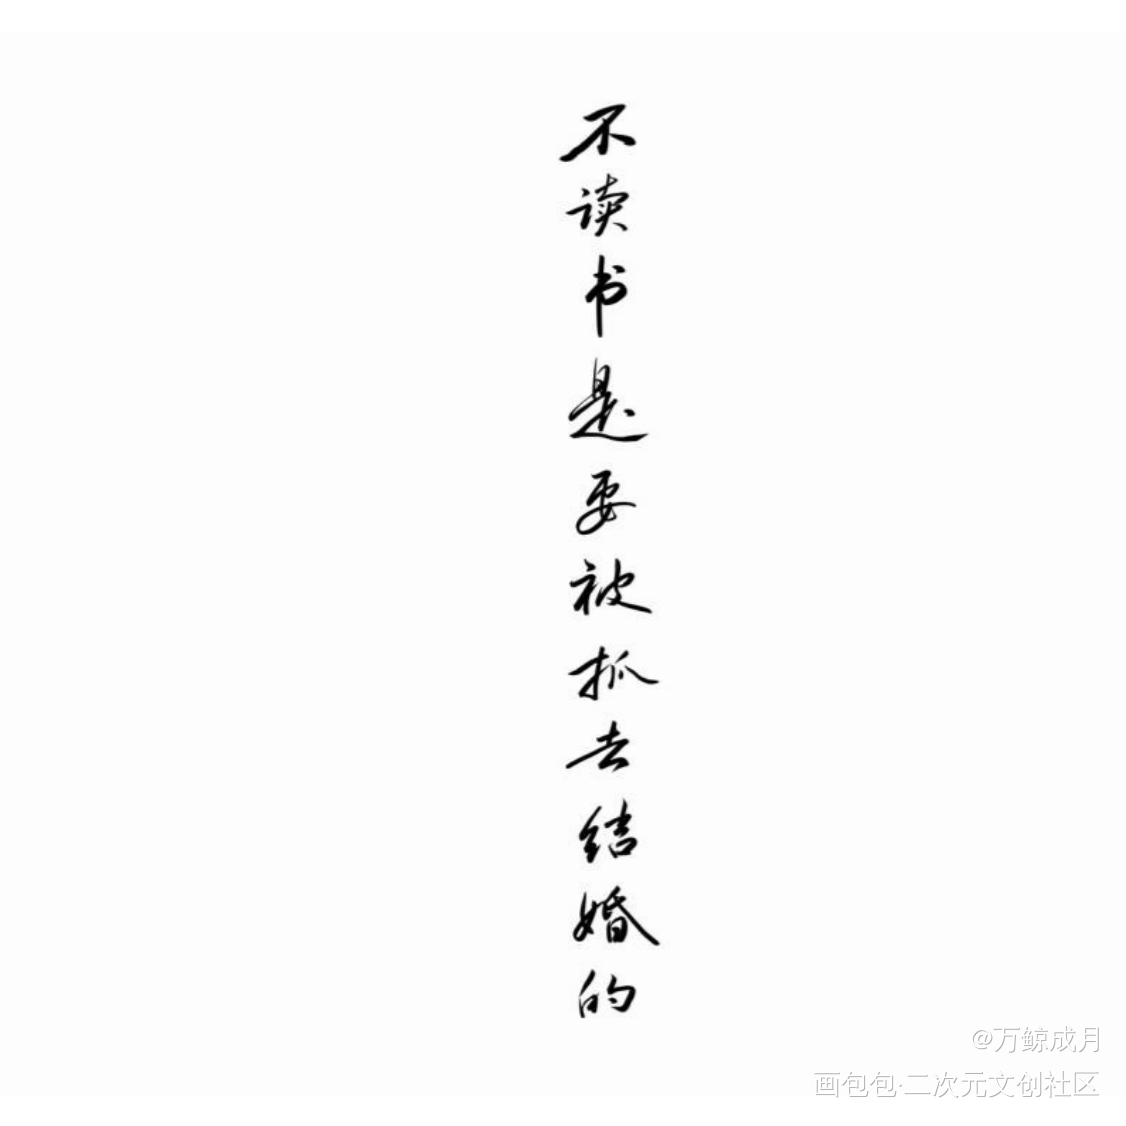 不读书是要被抓去结婚的
@万鲸成月
画包包·二次元文创社区